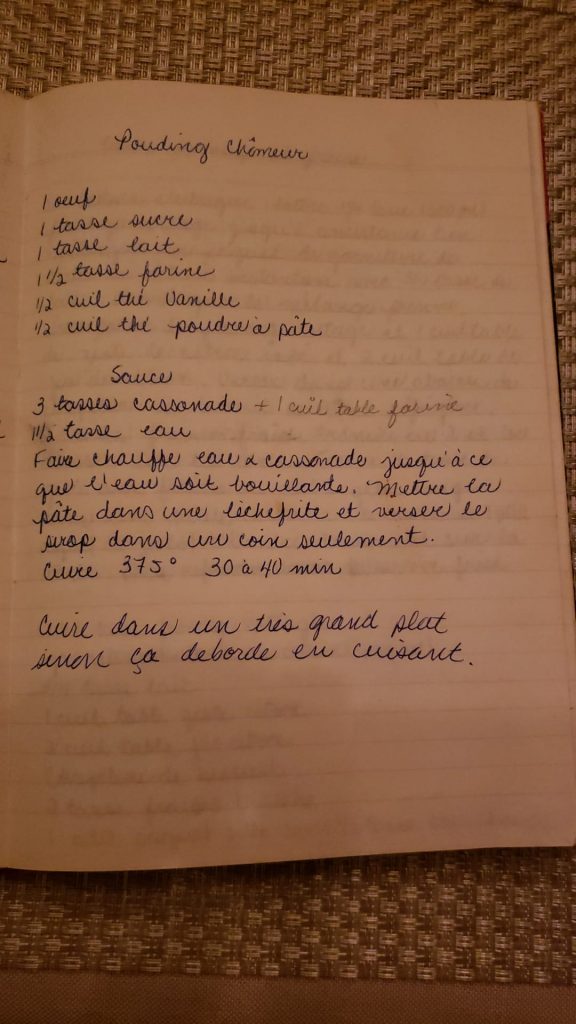 Pouding Chômeur
1 oeuf
1 tasse sucre
1 tasse lait
1 1/2 tasse farine
1/2 cuil thé Vanille
1/2 cuil thé poudre à pâte
Sauce
3 tasses cassonade + 1 cuil table farine
1 1/2 tasse eau
Faire chauffe eau & cassonade jusqu'à ce
que l'eau soit bouillante. Mettre la
pâte dans une lèchefrite et verser le
sirop dans un coin seulement.
Cuire 375° 30 à 40 min
Cuire dans un très grand plat
sinon ça deborde en cuisant.